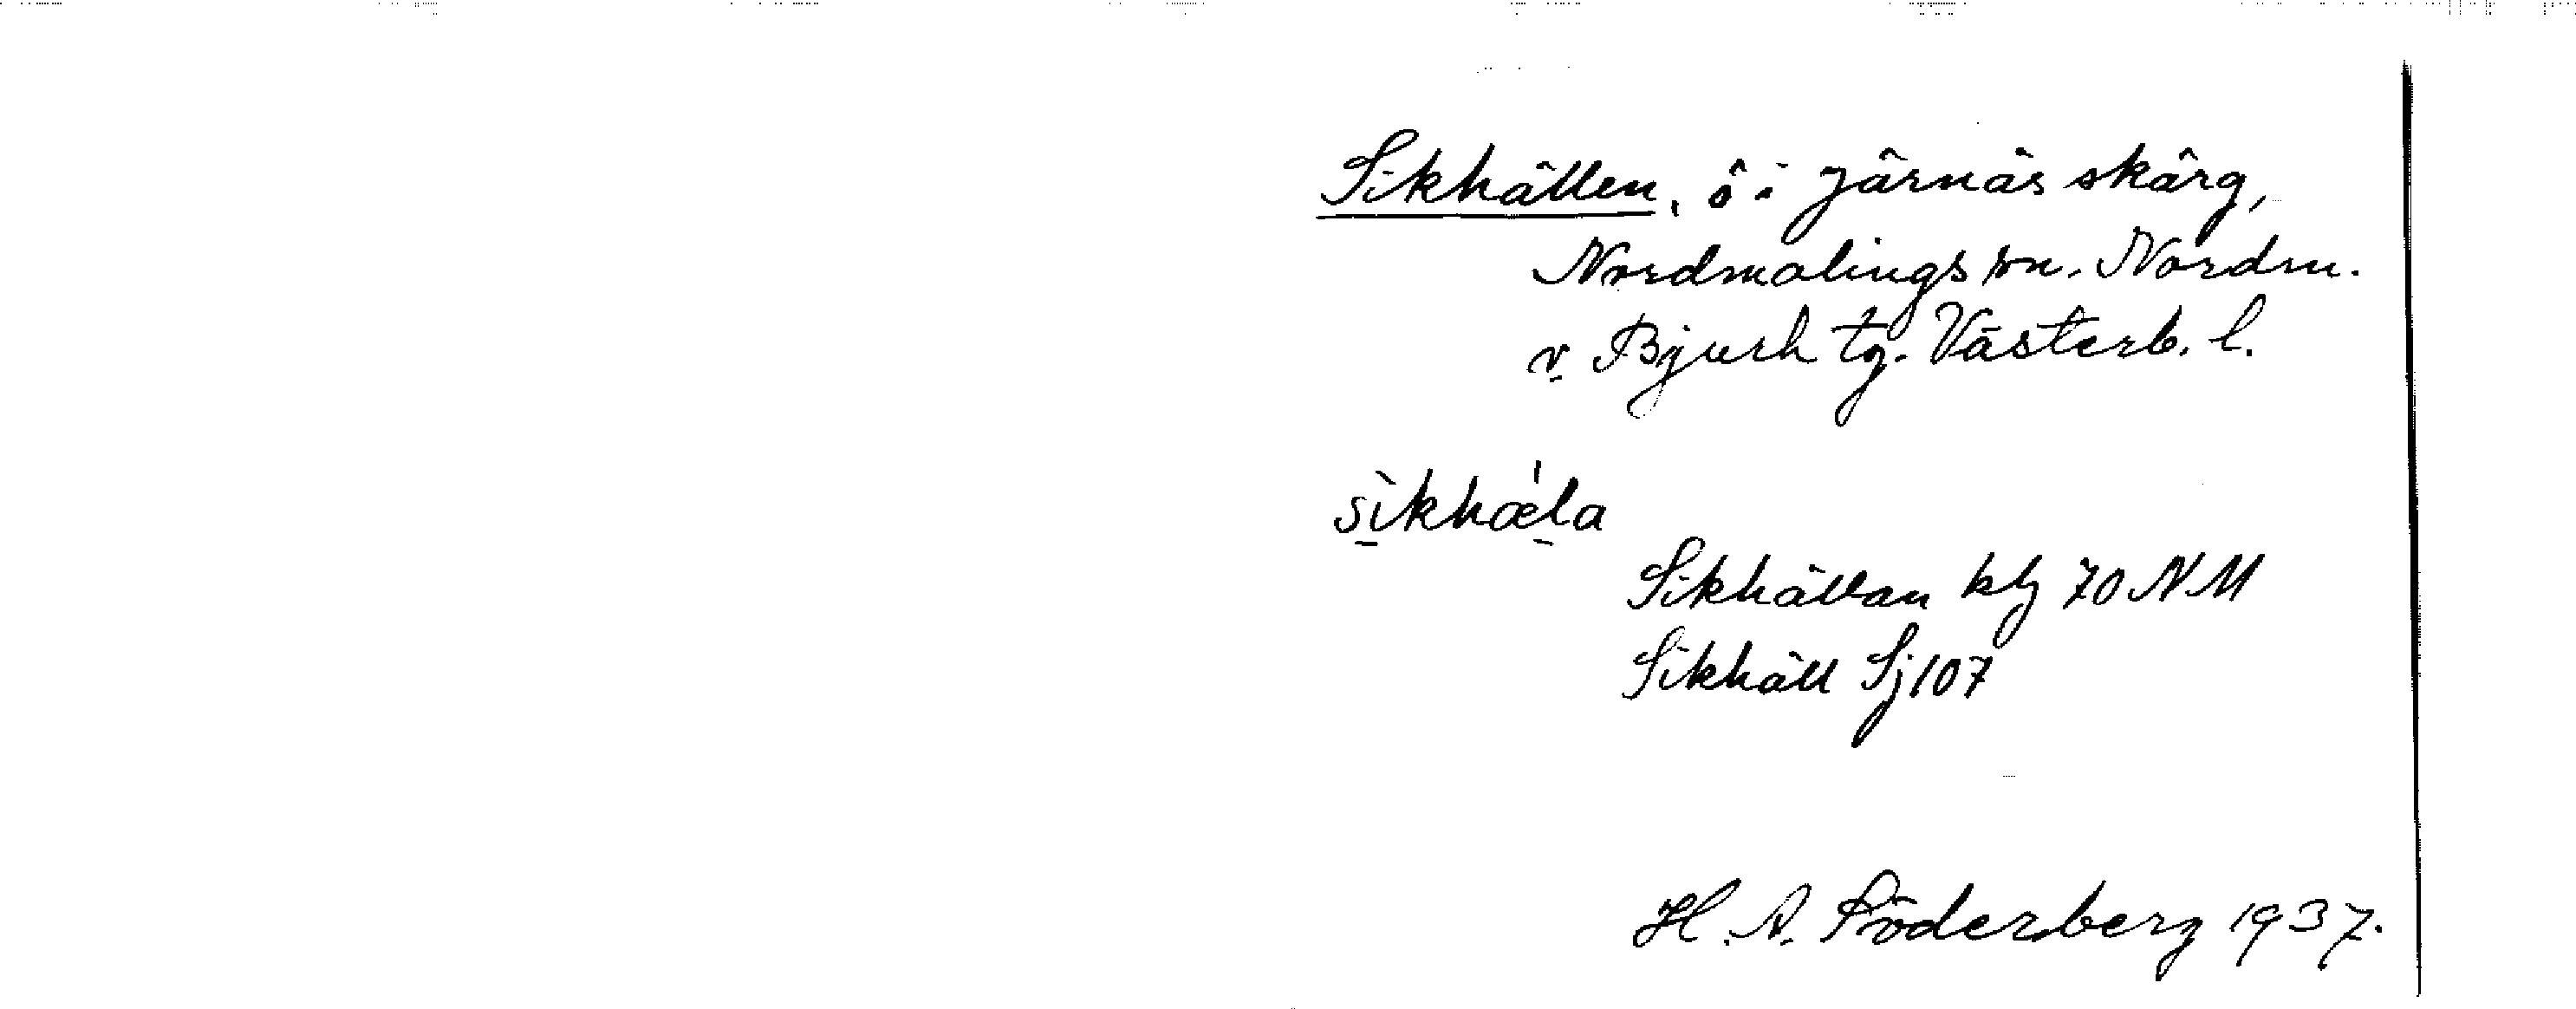 Sikhällen, ö i Järnäs skärg,
Nordmalings sn. Nordm.
o. Bjurh tg. Västerb. l.
sìkhæ̀la
Sikhällan blg 70 NM
Sikhäll Sj 107
H. A. Söderberg 1937.